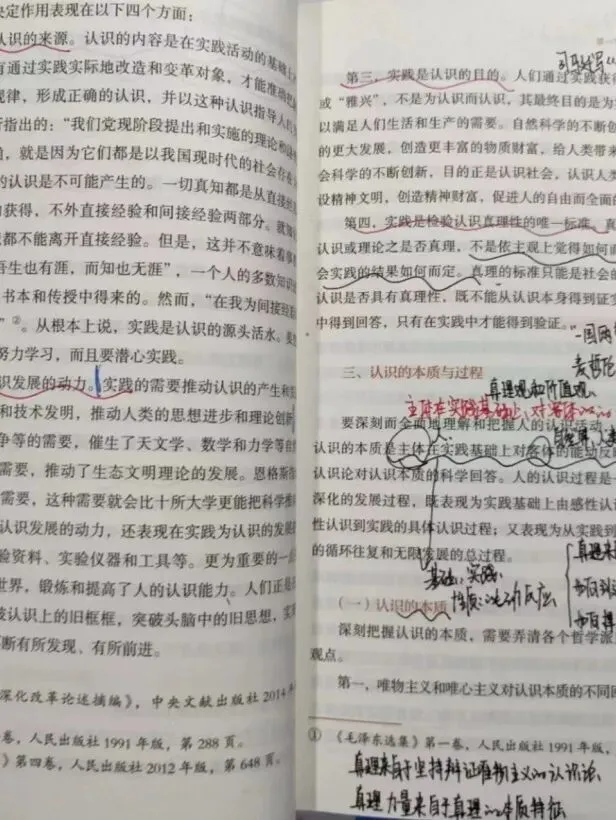 决定作用表现在以下四个方面：
认识的来源。认识的内容是在实践活动的基础上
有通过实践实际地改造和变革对象，才能准确把
规律，形成正确的认识，并以这种认识指导人的
所指出的：“我们党现阶段提出和实施的理论和
确，就是因为它们都是以我国现时代的社会存在
的认识是不可能产生的。一切真知都是从直接经
的获得，不外直接经验和间接经验两部分。就知
识都不能离开直接经验。但是，这并不意味着事
吾生也有涯，而知也无涯”，一个人的多数知识
书本和传授中得来的。然而，“在我为间接经
”②。从根本上说，实践是认识的源头活水。
努力学习，而且要潜心实践。
识发展的动力。实践的需要推动认识的产生和
和技术发明，推动人类的思想进步和理论创新
争等的需要，催生了天文学、数学和力学等自
需要，推动了生态文明理论的发展。恩格斯
需要，这种需要就会比十所大学更能把科学推
认识发展的动力，还表现在实践为认识的发展
验资料、实验仪器和工具等。更为重要的一点
世界，锻炼和提高了人的认识能力。人们正是
破认识上的旧框框，突破头脑中的旧思想，实
不断有所发现、有所前进。
深化改革论述摘编》，中央文献出版社2014年
卷，人民出版社1991年版，第288页。
》第四卷，人民出版社2012年版，第648页。
第三，实践是认识的目的。人们通过实践获得
或“雅兴”，不是为认识而认识，其最终目的是为
以满足人们生活和生产的需要。自然科学的不断创
的更大发展，创造更丰富的物质财富，给人类带来
会科学的不断创新，目的正是认识社会，认识人类
设精神文明，创造精神财富，促进人的自由而全面的
第四，实践是检验认识真理性的唯一标准。真
认识或理论之是否真理，不是依主观上觉得如何而
会实践的结果如何而定。真理的标准只能是社会的
认识是否具有真理性，既不能从认识本身得到证实
中得到回答，只有在实践中才能得到验证。
三、认识的本质与过程
真理观和价值观
主体在实践基础上，对客体的
要深刻而全面地理解和把握人的认识活动，
认识的本质是主体在实践基础上对客体的能动反映
认识论对认识本质的科学回答。人的认识过程是一
深化的发展过程，既表现为实践基础上由感性认识
性认识到实践的具体认识过程；又表现为从实践到
的循环往复和无限发展的总过程。
基础：实践
性质：能动反应
（一）认识的本质
深刻把握认识的本质，需要弄清各个哲学派
观点。
第一，唯物主义和唯心主义对认识本质的不同回
① 《毛泽东选集》第一卷，人民出版社1991年版，
真理来自于坚持辩证唯物主义的认识论
真理力量来自于真理的本质特征